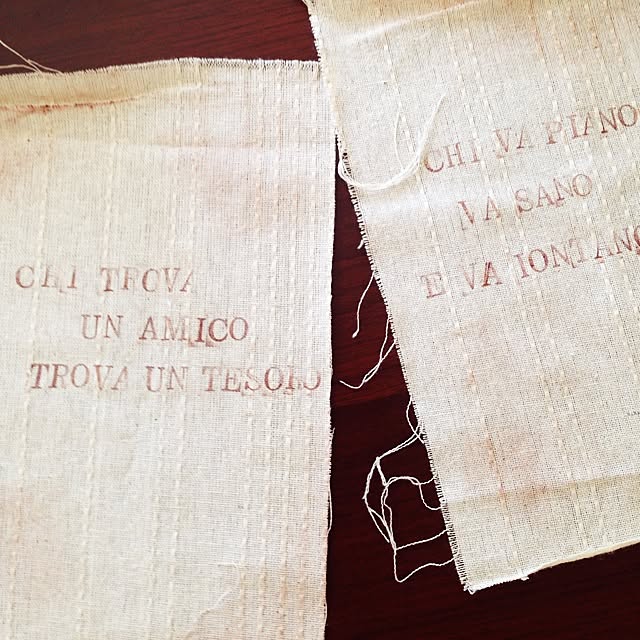 CHI TROVA
UN AMICO
TROVA UN TESORO
CHI VA PIANO
VA SANO
E VA IONTANO